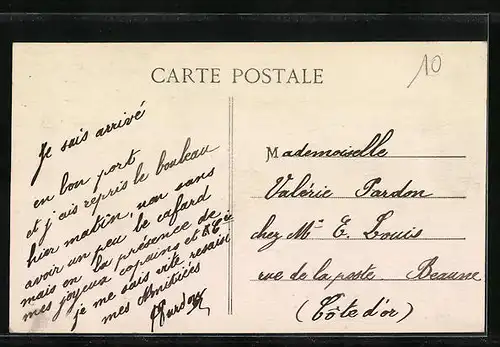 CARTE POSTALE
10
Je suis arrivé
en bon port
et j'ais repris le bouleau
hier matin, non sans
avoir un peu le cafard
mais en la présence de
mes joyeux copains et
je me suis vite resaisi
mes Amitiées
Mademoiselle
Valérie Pardon
chez Mr E. Louis
rue de la poste Beaune
(Côte d'or)